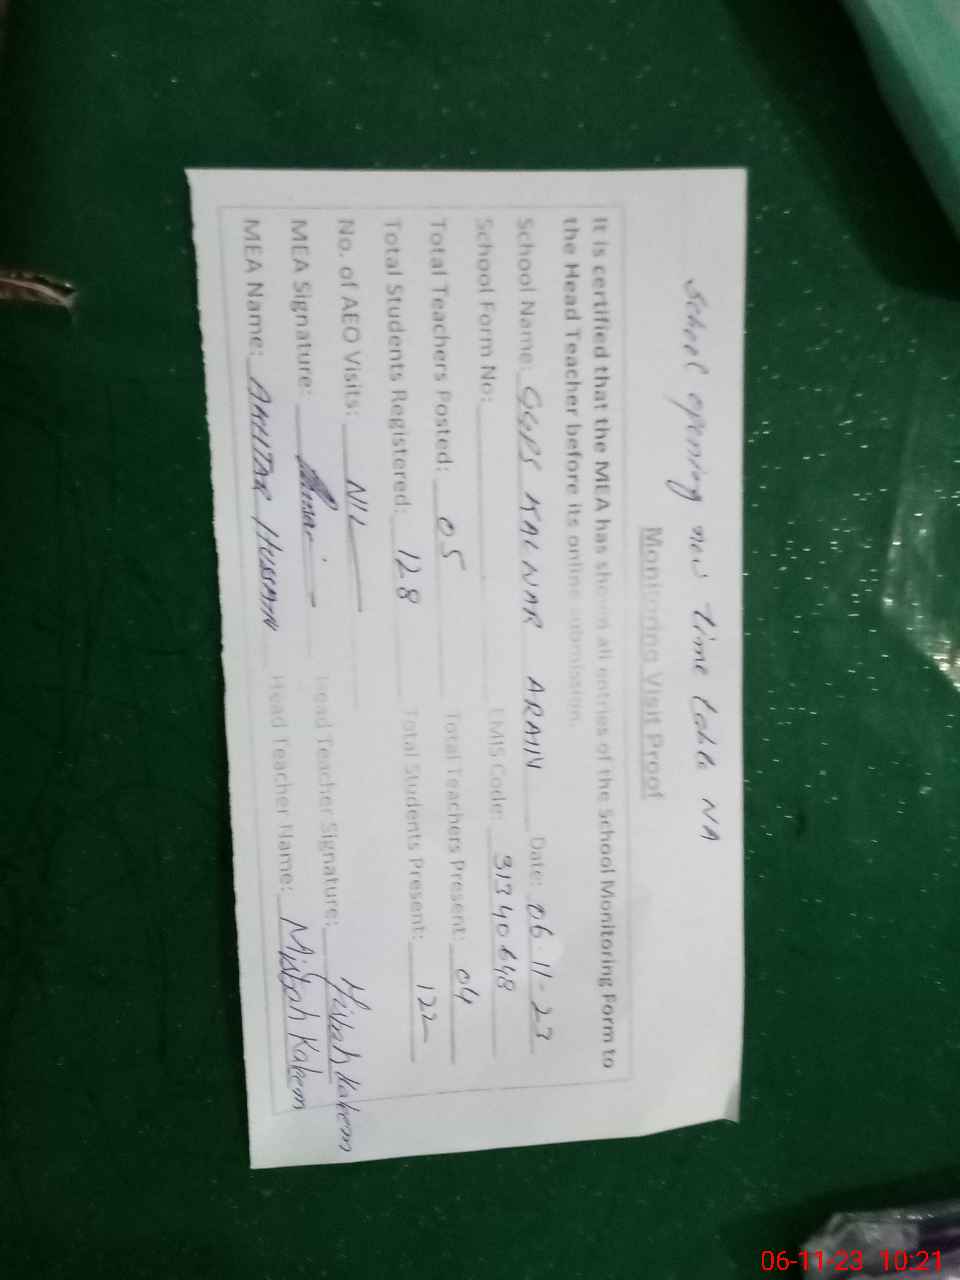 School opening new time table NA
Monitoring Visit Proof
It is certified that the MEA has shown all entries of the School Monitoring Form to
the Head Teacher before its online submission.
School Name: GGPS KALWAR ARAIN Date: 06-11-23
School Form No: EMIS Code: 31340648
Total Teachers Posted: 05 Total Teachers Present: 04
Total Students Registered: 128 Total Students Present: 122
No. of AEO Visits: NIL
MEA Signature: Head Teacher Signature: Misbah Kaleem
MEA Name: AKHTAR HUSSAIN Head Teacher Name: Misbah Kaleem
06-11-23 10:21